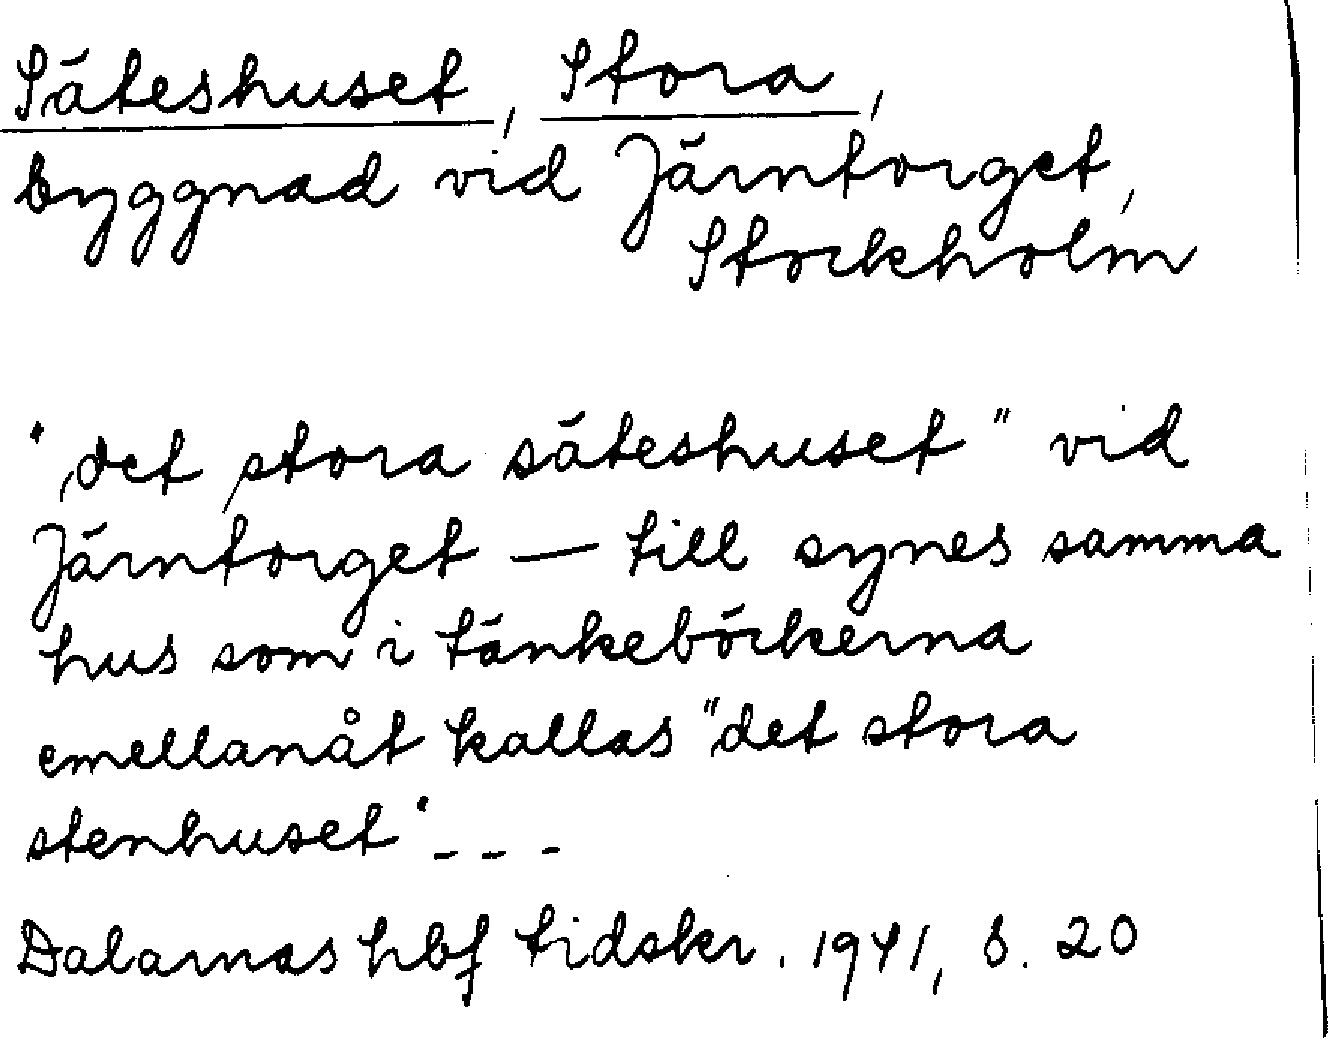 Säteshuset, Stora,
byggnad vid Järntorget,
Stockholm
"det stora säteshuset" vid
Järntorget — till synes samma
hus som i tänkeböckerna
emellanåt kallas "det stora
stenhuset" - - -
Dalarnas hbf tidskr. 1941, s. 20